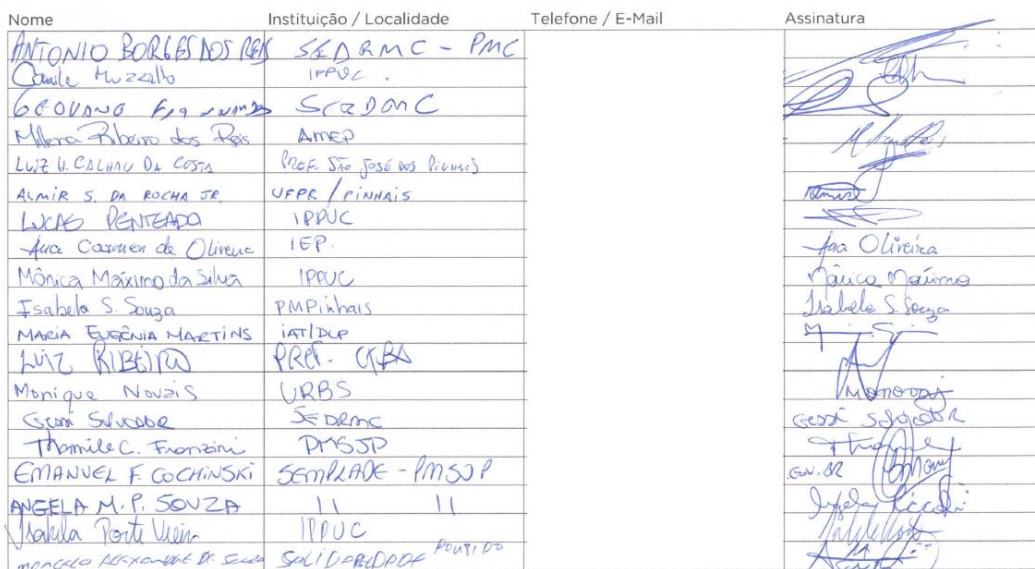 Nome Instituição / Localidade Telefone / E-Mail Assinatura
ANTONIO BORGES DOS REIS SEDRMC - PMC
Camile Muzzillo IPPUC.
GEOVANO
Millena Ribeiro dos Reis AMEP
LUIZ H. CALHAU DA COSTA PREF. SÃO JOSÉ DOS PINHAIS
ALMIR S. DA ROCHA JR. UFPR / PINHAIS
LUCAS PENTEADO IPPUC
Ana Carmen de Oliveira IEP. Ana Oliveira
Mônica Máximo da Silva IPPUC Mônica Máximo
Isabela S. Souza PMPinhais Isabela S. Souza
MARIA EUGÊNIA MARTINS IAT/DLP
LUIZ RIBEIRO PREF. CTBA
Monique Novais URBS Monovais
Gessé Salvador SEDRMC Gessé Salvador
Thamile C. Franzini PMSJP
EMANUEL F. COCHINSKI SEMPLADE - PMSJP GOV.BR
ANGELA M. P. SOUZA 11 11
Isabela Porte Vieira IPPUC
SOLIDARIEDADE PARTIDO